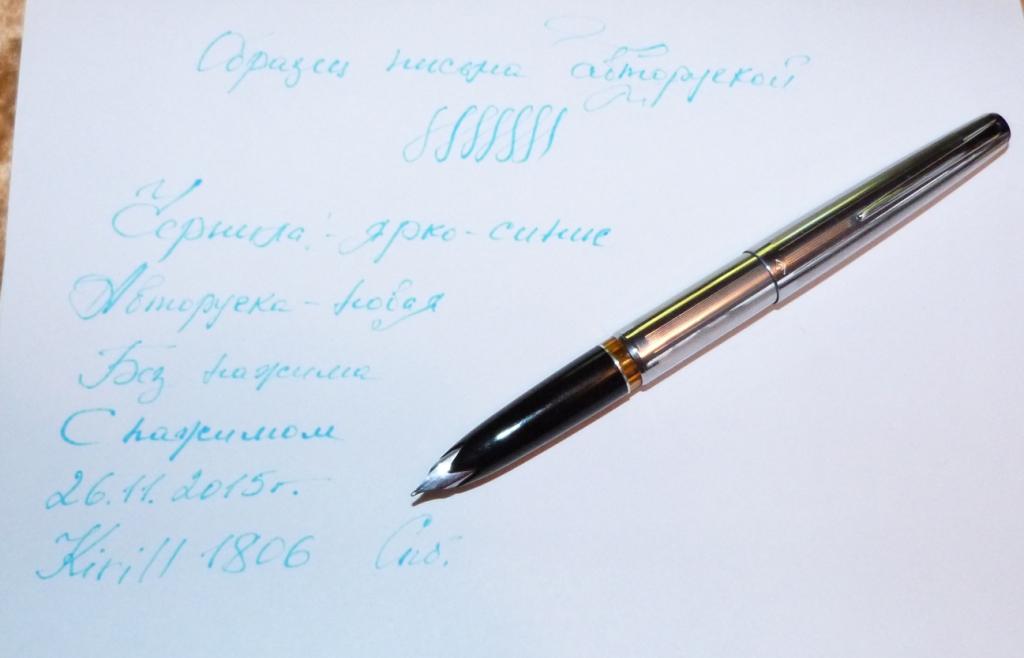 Образец письма авторучкой
Чернила:- ярко-синие
Авторучка - новая
Без нажима
С нажимом
26.11.2015г.
Kirill 1806 Спб.